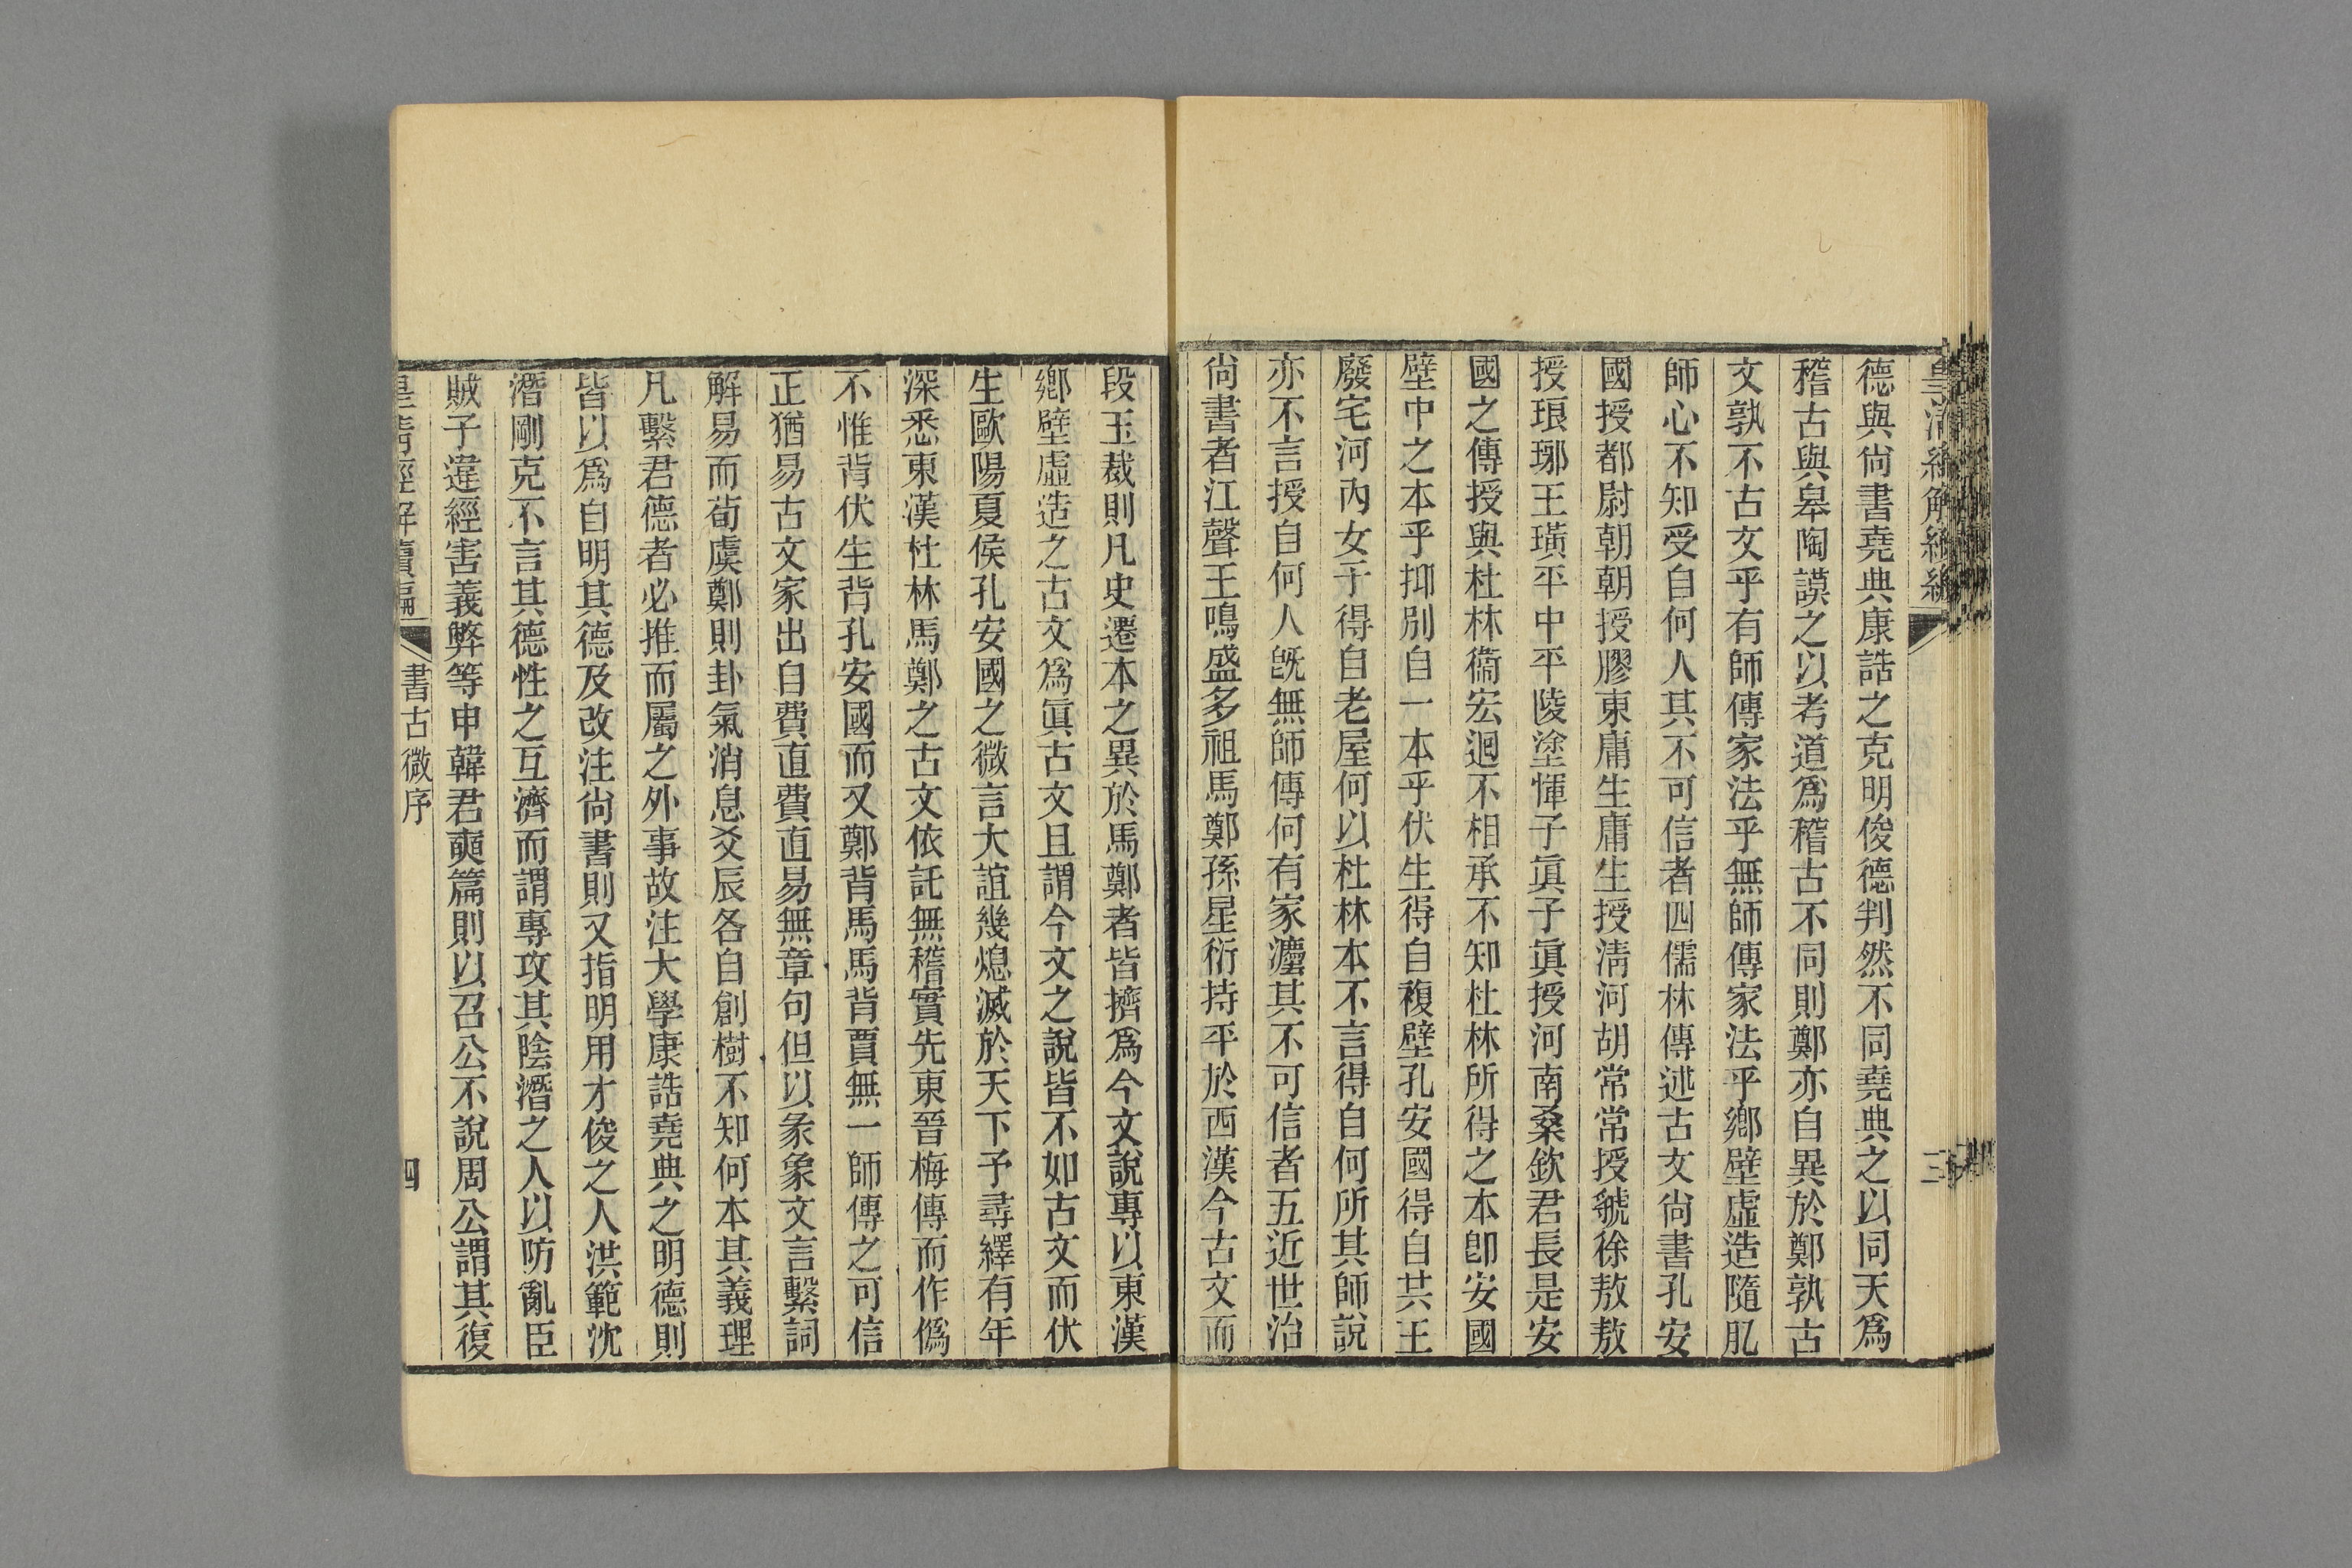 皇清經解續編
三
德與尙書堯典康誥之克明俊德判然不同堯典之以同天爲
稽古與皋陶謨之以考道爲稽古不同則鄭亦自異於鄭孰古
文孰不古文乎有師傳家法乎無師傳家法乎鄉壁虛造隨肊
師心不知受自何人其不可信者四儒林傳述古文尙書孔安
國授都尉朝朝授膠東庸生庸生授淸河胡常常授虢徐敖敖
授琅琊王璜平中平陵塗惲子眞子眞授河南桑欽君長是安
國之傳授與杜林衞宏迥不相承不知杜林所得之本卽安國
壁中之本乎抑別自一本乎伏生得自複壁孔安國得自共王
廢宅河內女子得自老屋何以杜林本不言得自何所其師說
亦不言授自何人旣無師傳何有家灋其不可信者五近世治
尙書者江聲王鳴盛多祖馬鄭孫星衍持平於西漢今古文而
段玉裁則凡史遷本之異於馬鄭者皆擠爲今文說專以東漢
鄉壁虛造之古文爲眞古文且謂今文之說皆不如古文而伏
生歐陽夏侯孔安國之微言大誼幾熄滅於天下予尋繹有年
深悉東漢杜林馬鄭之古文依託無稽實先東晉梅傳而作僞
不惟背伏生背孔安國而又鄭背馬馬背賈無一師傳之可信
正猶易古文家出自費直費直易無章句但以彖象文言繫詞
解易而荀虞鄭則卦氣消息爻辰各自創樹不知何本其義理
凡繫君德者必推而屬之外事故注大學康誥堯典之明德則
皆以爲自明其德及改注尙書則又指明用才俊之人洪範沈
潛剛克不言其德性之互濟而謂專攻其陰潛之人以防亂臣
賊子違經害義弊等申韓君奭篇則以召公不說周公謂其復
皇淸經解續編
書古微序
四